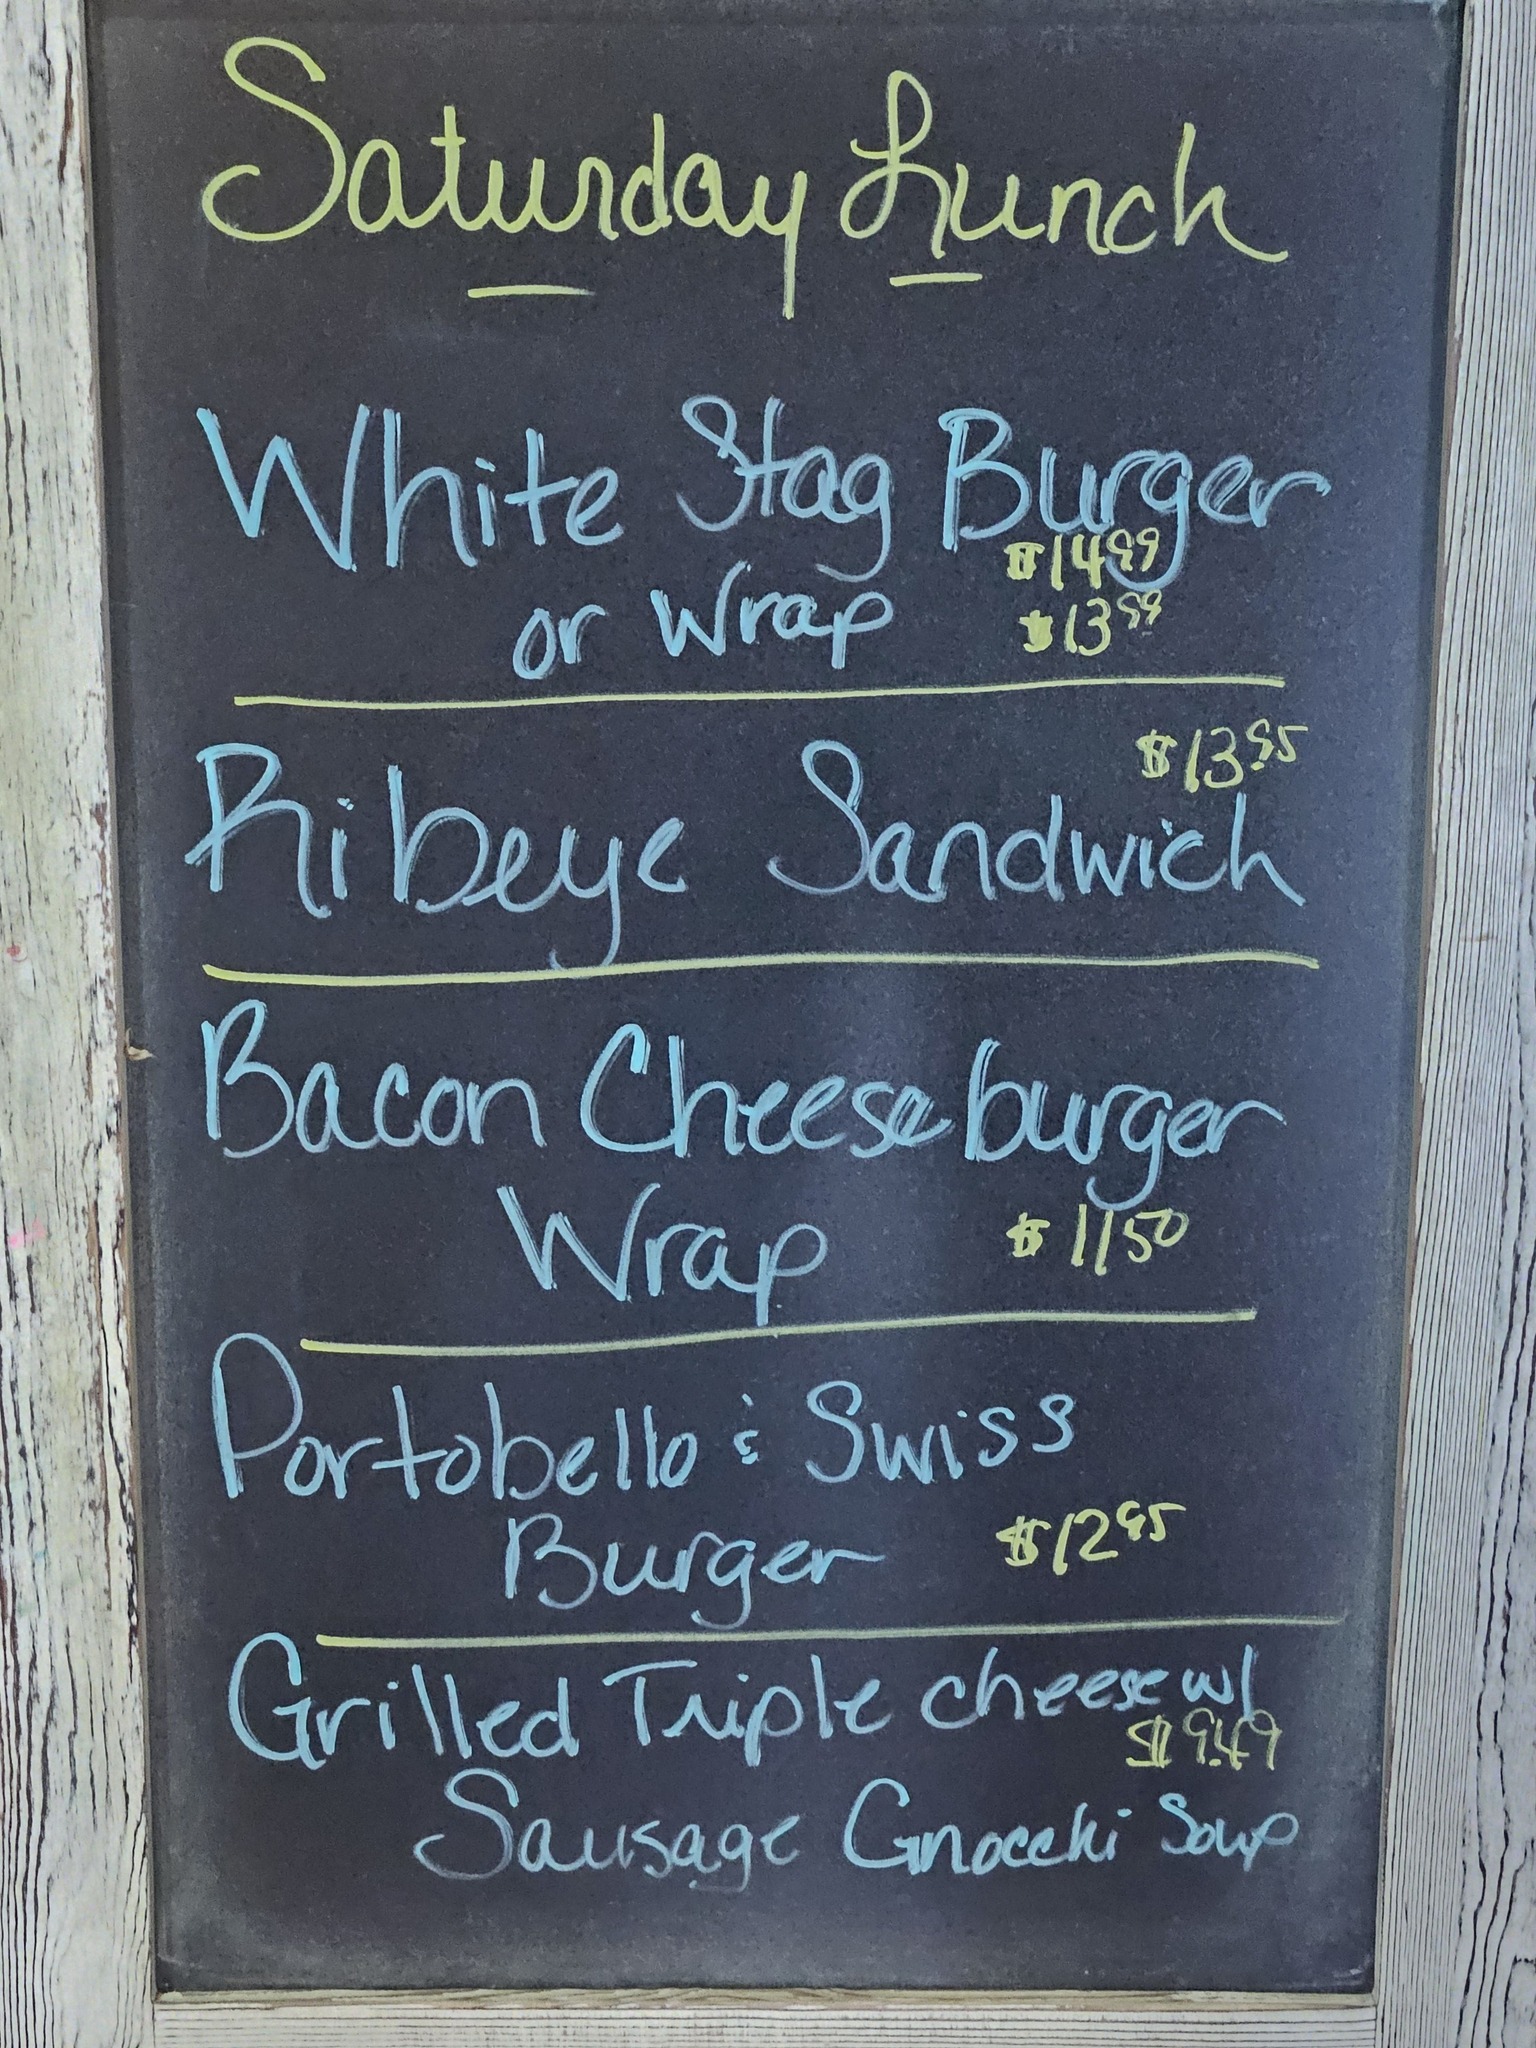 Saturday Lunch
White Stag Burger
$14.99
or Wrap $13.99
$13.95
Ribeye Sandwich
Bacon Cheeseburger
Wrap $11.50
Portobello & Swiss
Burger $12.95
Grilled Triple cheese w/
$9.49
Sausage Gnocchi Soup